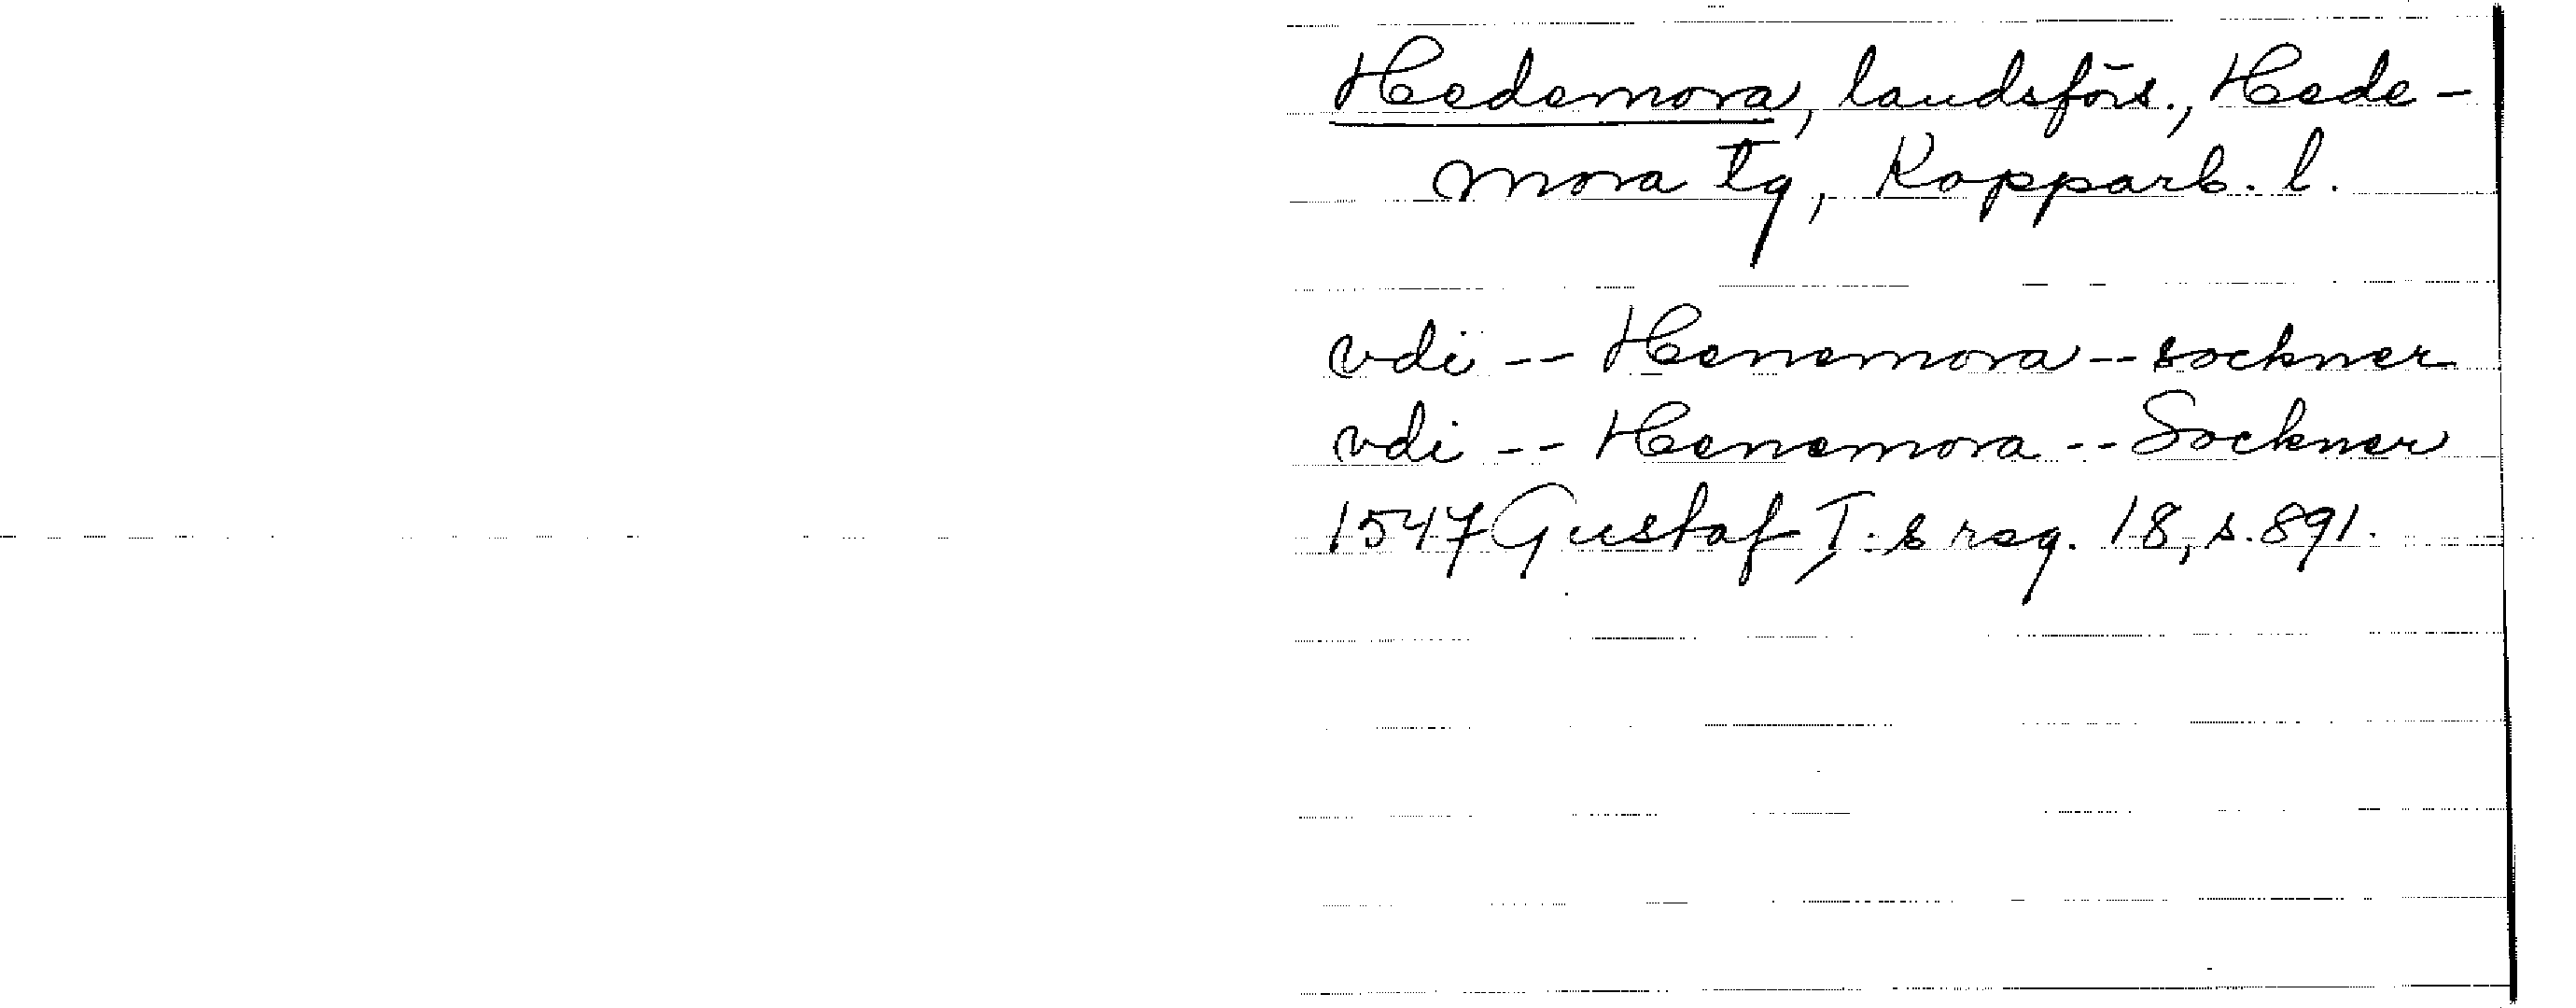 Hedemora, landsförs., Hede-
mora tg, Kopparb. l.
vdi -- Henemora -- sockner
vdi -- Henemora -- Sockner
1547 Gustaf I:s reg. 18, s. 891.